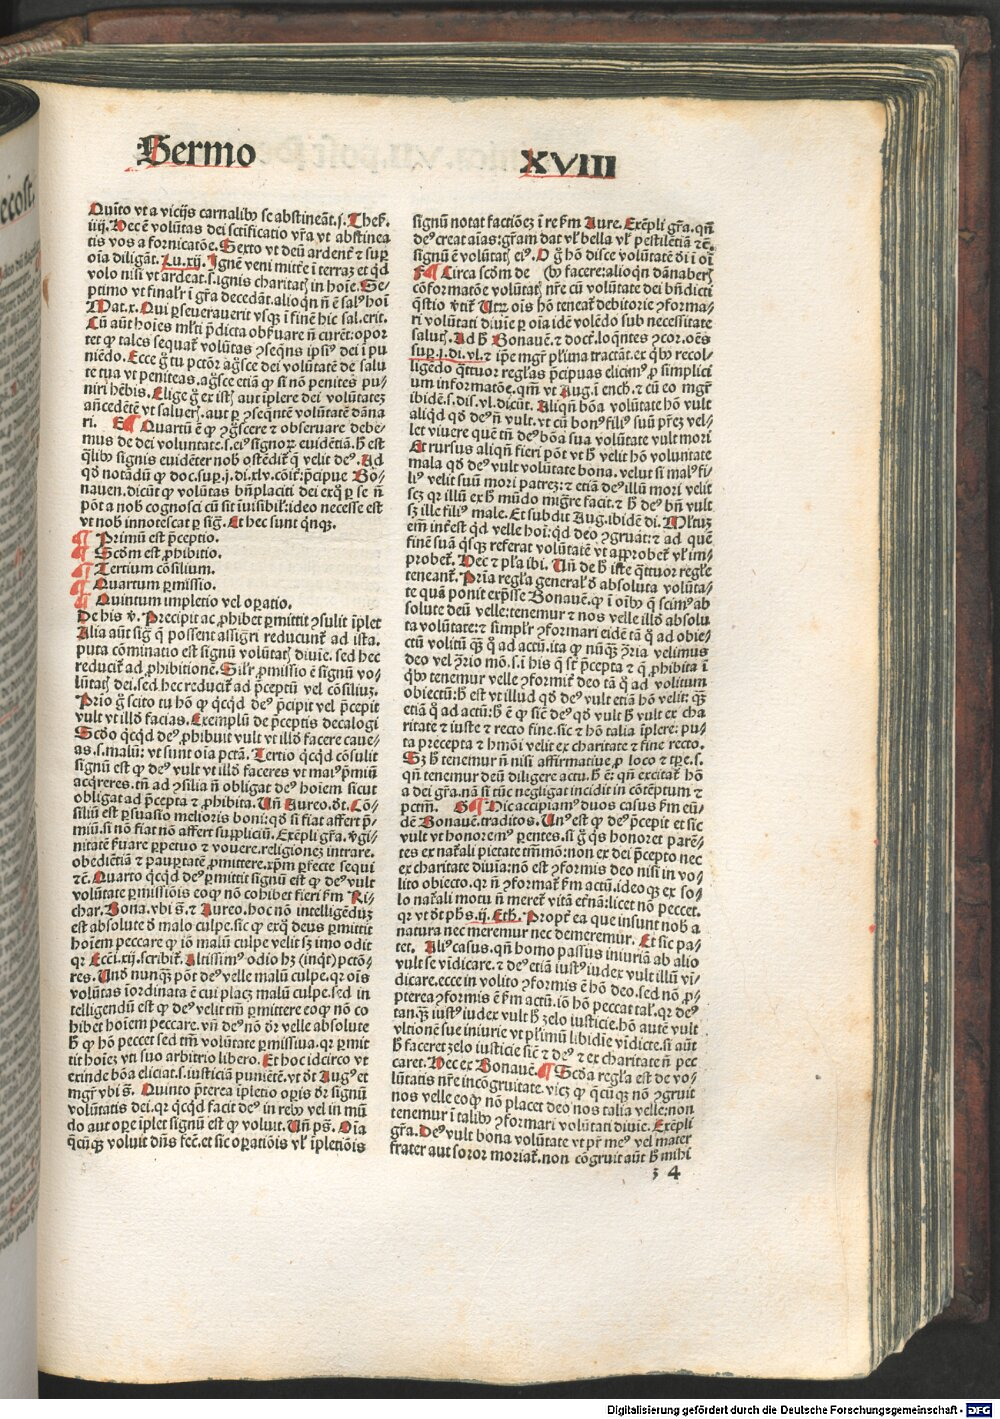 Sermo XVIII
Quīto vt a vicijs carnalibꝰ se abstineāt.s. Thes̄.
iiij. Hec ē volūtas dei scīficatio vr̄a vt abstinea
tis vos a fornicatōe. Sexto vt deū ardenť ⁊ suꝑ
oīa diligāt. Lu.xij. Ignē veni mitťe ī terraꝫ et qd̄
volo nisi vt ardeat.s.ignis charitatꝭ in hoīe. Se-
ptimo vt finalř ī gr̄a decedāt.alioqn̄ n̄ ē salꝰ hoī
Mat.x. Qui ꝑseuerauerit vsqꝫ ī finē hic sal.erit.
Cū aūt hoīes ml̄ti p̄dicta obs̄uare n̄ curēt:opor
tet ꝙ tales sequať volūtas ꝯseqn̄s ipsiꝰ dei ī pu
niēdo. Ecce g̊ tu pctōr ag̊sce dei volūtatē de salu
te tua vt peniteas.ag̊sce etiā ꝙ si nō penites pu-
niri hēbis. Elige g̊ ex istꝭ aut īplere dei volūtateꝫ
an̄cedētē vt salueř.aut ꝑ ꝯseqn̄tē volūtatē dāna
ri. E ¶ Quartū ē ꝙ ꝯg̊scere ⁊ obseruare debe-
mus de dei voluntate.s.eiꝰ signorꝫ euidētiā.h̄ est
q̄libꝫ signis euidēter nob̄ ostēdiť qͥ velit deꝰ. Ad
qd̊ notādū ꝙ doc.suꝑ.j.di.xlv.cōiť:p̄cipue Bo-
nauen.dicūt ꝙ volūtas bn̄placiti dei exqͦ ꝑ se n̄
pōt a nob̄ cognosci cū sit īuisibil̓:ideo necesse est
vt nob̄ innotescat ꝑ sig̊. Et hec sunt qn̄qꝫ.
¶ Primū est p̄ceptio.
¶ Scd̄m est ꝓhibitio.
¶ Tertium cōsilium.
¶ Quartum ꝑmissio.
¶ Quintum impletio vel oꝑatio.
De his v̓. Precipit ac ꝓhibet ꝑmittit ꝯsulit īplet
Alia aūt sig̊ q̄ possent assig̊ri reducunť ad ista.
puta cōminatio est signū volūtatꝭ diuīe. sed hec
reduciť ad ꝓhibitionē. Silř ꝓmissio ē signū vo-
lūtatꝭ dei.sed hec reduciť ad p̄ceptū vel cōsiliuꝫ.
Prio g̊ scito tu hō ꝙ qͥcqd̄ deꝰ p̄cipit vel p̄cepit
vult vt illd̊ facias. Exemplū de p̄ceptis decalogi
Scd̊o qͥcqd̄ deꝰ ꝓhibuit vult vt illd̊ facere caue-
as.s.malū: vt sunt oīa pctā. Tertio qͥcqd̄ cōsulit
signū est ꝙ deꝰ vult vt illd̊ faceres vt maiꝰ p̄miū
acqͥreres.tn̄ ad ꝯsilia n̄ obligat deꝰ hoīem sicut
obligat ad p̄cepta ⁊ ꝓhibita. Un̄ Aureo.d̄t. Cō-
siliū est ꝑsuasio melioris boni:qd̊ si fiat affert p̄-
miū.si nō fiat nō affert suppliciū. Exēpli gr̄a. v̓gi-
nitatē s̄uare ꝑpetuo ⁊ vouere.religioneꝫ intrare.
obediētiā ⁊ paupertatē ꝓmittere.xp̄m ꝑfecte sequi
⁊c̄. Quarto qͥcqd̄ deꝰ ꝑmittit signū est ꝙ deꝰ vult
voluntate ꝑmissiōis eoqꝫ nō cohibet fieri s̄m Ri-
char. Bona.vbi s̄. ⁊ Aureo.hoc nō intelligēduꝫ
est absolute d̊ malo culpe.sic ꝙ exqͦ deus ꝑmittit
hoīem peccare ꝙ iō malū culpe velit sꝫ imo odit
qꝛ Ecci.xij.scribiť. Altissimꝰ odio hꝫ (inqͥt) pctō-
res. Und̓ nunqꝫ̄ pōt deꝰ velle malū culpe.qꝛ oīs
volūtas īordinata ē cui placꝫ malū culpe.sed in
telligendū est ꝙ deꝰ velit tm̄ ꝑmittere eoqꝫ nō co
hibet hoīem peccare.vn̄ deꝰ nō d̄r velle absolute
h̄ ꝙ hō peccet sed tm̄ volūtate ꝑmissiua.qꝛ ꝑmit
tit hoīeꝫ vti suo arbitrio libero. Et hoc idcirco vt
exinde bōa eliciat.s.iusticiā puniētē.vt d̄t Augꝰ et
mgr̄ vbi s̄. Quinto p̄terea īpletio oꝑis d̄r signū
volūtatis dei.qꝛ qͥcqd̄ facit deꝰ in rebꝫ vel in mū
do aut oꝑe īplet signū est ꝙ voluit. Un̄ ps̄. Oīa
q̄cūqꝫ voluit dn̄s fec̄.et sic oꝑatiōis vl̓ īpletiōis
signū notat factiōeꝫ ī re s̄m Aure. Exēpli gr̄a.qn̄
deꝰ creat aīas:gr̄am dat vl̓ bella vl̓ pestilētiā ⁊c̄.
signū ē volūtatꝭ eiꝰ. O g̊ hō disce volūtatē dī ī oī
F ¶ Circa scd̄m de (bꝫ facere:alioqn̄ dānaberꝭ
cōformatōe volūtatꝭ nr̄e cū volūtate dei bn̄dicti
qͣstio v̓tiť. Utꝝ oīs hō teneať debitorie ꝯforma-
ri volūtati diuīe ꝑ oīa idē volēdo sub necessitate
salutꝭ. Ad h̄ Bonauē.⁊ docť.loqn̄tes ꝯcor.oēs
suꝑ.j.di.vl.⁊ ip̄e mgr̄ pl̓ima tractāt.ex qͥbꝫ recol-
ligēdo qͣttuor regl̓as p̄cipuas elicimꝰ ꝓ simplici
um informatōe.qm̄ vt Aug.ī ench.⁊ cū eo mgr̄
ibidē.s.dis.vl.dicūt. Aliqn̄ bōa volūtate hō vult
aliqd̄ qd̊ deꝰ n̄ vult.vt cū bonꝰ filiꝰ suū pr̄eꝫ vel-
let viuere quē tn̄ deꝰ bōa sua volūtate vult mori
Et rursus aliqn̄ fieri pōt vt h̄ velit hō voluntate
mala qd̊ deꝰ vult volūtate bona.velut si malꝰ fi-
liꝰ velit suū mori patreꝫ:⁊ etiā deꝰ illū mori velit
seꝫ qꝛ illū ex h̄ mūdo migr̄e facit.⁊ h̄ deꝰ bn̄ vult
sꝫ ille filiꝰ male. Et subdit Aug.ibidē di. Ml̓tuꝫ
em̄ inťest qd̄ velle hoī:qd̄ deo ꝯgruāt:⁊ ad quē
finē suā qͥsqꝫ referat volūtatē vt approbeť vl̓ im-
probeť. Hec ⁊ pl̓a ibi. Un̄ de h̄ iste qͣttuor regl̓e
teneanť. Prīa regl̓a general̓ d̊ absoluta volūta-
te quā ponit exp̄sse Bonauē.ꝙ ī oībꝫ q̄ scimꝰ ab
solute deū velle:tenemur ⁊ nos velle illd̊ absolu
ta volūtate:⁊ simplř ꝯformari eidē tā qͦ ad obie-
ctū volitū qͣꝫ qͦ ad actū.ita ꝙ nūqꝫ̄ ꝯͬria velimus
deo vel ꝯͬrio mō.s.ī his q̄ sť p̄cepta ⁊ q̄ ꝓhibita ī
qͥbꝫ tenemur velle ꝯformiť deo tā qͦ ad volitum
obiectū:h̄ est vt illud qd̊ deꝰ vult etiā hō velit:qͣꝫ
etiā qͦ ad actū:h̄ ē ꝙ sic̄ deꝰ qd̊ vult h̄ vult ex cha
ritate ⁊ iuste ⁊ recto fine.sic ⁊ hō talia īplere: pu-
ta precepta ⁊ hmōi velit ex charitate ⁊ fine recto.
Sꝫ h̄ tenemur n̄ nisi affirmatiue ꝓ loco ⁊ tꝑe.s.
qn̄ tenemur deū diligere actu.h̄ ē: qn̄ excitať hō
a dei gr̄a.nā si tūc negligat incidit in cōtēptum ⁊
pctm̄. G ¶ Hic accipiamꝰ duos casus s̄m eū-
dē Bonauē.traditos. Unꝰ est ꝙ deꝰ p̄cepit et sic
vult vt honoremꝰ ꝑentes.si g̊ qͥs honoret parē-
tes ex naťali pietate tm̄mō:non ex dei p̄cepto nec
ex charitate diuīa:nō est ꝯformis deo nisi in vo-
lito obiecto.qꝛ n̄ ꝯformať s̄m actū.ideoqꝫ ex so-
lo naťali motu n̄ mereť vitā etn̄ā:licet nō peccet.
qꝛ vt d̄t pħs.ij. Eth. Propť ea que insunt nob̄ a
natura nec meremur nec demeremur. Et sic pa-
tet. Aliꝰ casus.qn̄ homo passus iniuriā ab alio
vult se vīdicare.⁊ deꝰ etiā iustꝰ iudex vult illū vī-
dicare.ecce in volito ꝯformis ē hō deo.sed nō ꝓ-
pterea ꝯformis ē s̄m actū.iō hō peccat tal̓.qꝛ deꝰ
tanqꝫ̄ iustꝰ iudex vult h̄ zelo iusticie.hō autē vult
vltionē sue iniurie vt pl̓imū libidīe vīdicte.si aūt
h̄ faceret zelo iusticie sic̄ ⁊ deꝰ ⁊ ex charitate n̄ pec
caret. Hec ex Bonauē. ¶ Scd̊a regl̓a est de vo-
lūtatis nr̄e incōgruitate.vicꝫ ꝙ qͥcūqꝫ nō ꝯgruit
nos velle eoqꝫ nō placet deo nos talia velle:non
tenemur ī talibꝫ ꝯformari volūtati diuīe. Exēpli
gr̄a. Deꝰ vult bona volūtate vt pr̄ meꝰ vel mater
frater aut soror moriať.non cōgruit aūt h̄ mihi
z 4
Digitalisierung gefördert durch die Deutsche Forschungsgemeinschaft - DFG